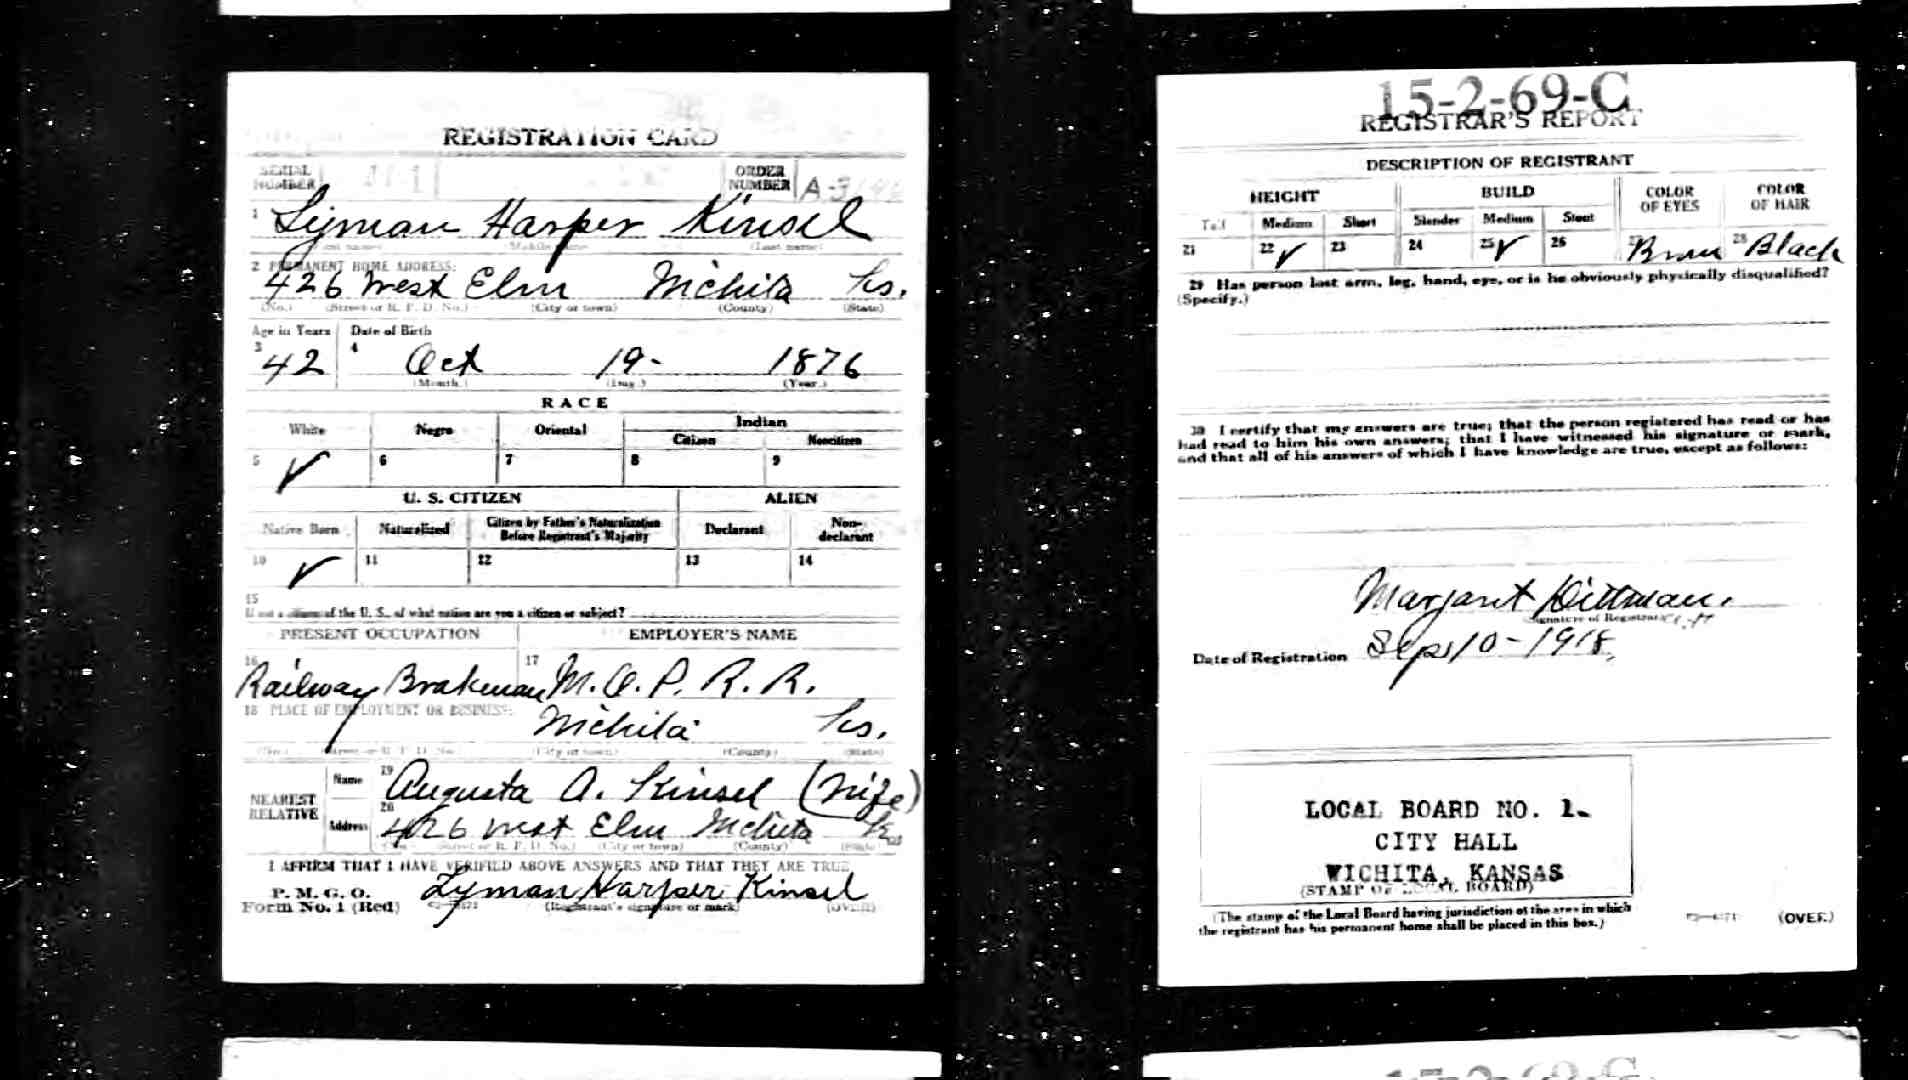 REGISTRATION CARD
SERIAL NUMBER
ORDER NUMBER A-
1 Lyman Harper Kinsel
(Last name)
2 PERMANENT HOME ADDRESS:
426 West Elm Wichita Ks.
(No.) (Street or R. F. D. No.) (City or town) (County) (State)
Age in Years Date of Birth
3 42 4 Oct 19- 1876
(Month.) (Day.) (Year.)
RACE
White Negro Oriental Indian
Citizen Noncitizen
5 ✓ 6 7 8 9
U. S. CITIZEN ALIEN
Native Born Naturalized Citizen by Father's Naturalization Before Registrant's Majority Declarant Non-declarant
10 ✓ 11 12 13 14
15
If not a citizen of the U. S., of what nation are you a citizen or subject?
PRESENT OCCUPATION EMPLOYER'S NAME
16 Railway Brakeman 17 M. O. P. R. R.
18 PLACE OF EMPLOYMENT OR BUSINESS:
Wichita Ks.
(No.) (Street or R. F. D. No.) (City or town) (County) (State)
NEAREST RELATIVE Name 19 Augusta A. Kinsel (Wife)
Address 20 426 West Elm Wichita Ks
(No.) (Street or R. F. D. No.) (City or town) (County) (State)
I AFFIRM THAT I HAVE VERIFIED ABOVE ANSWERS AND THAT THEY ARE TRUE
P. M. G. O.
Form No. 1 (Red) Lyman Harper Kinsel
(Registrant's signature or mark) (OVER)
15-2-69-C
REGISTRAR'S REPORT
DESCRIPTION OF REGISTRANT
HEIGHT BUILD COLOR OF EYES COLOR OF HAIR
Tall Medium Short Slender Medium Stout
21 22 ✓ 23 24 25 ✓ 26 27 Brown 28 Black
29 Has person lost arm, leg, hand, eye, or is he obviously physically disqualified?
(Specify.)
30 I certify that my answers are true; that the person registered has read or has
had read to him his own answers; that I have witnessed his signature or mark,
and that all of his answers of which I have knowledge are true, except as follows:
Margaret Dittman.
(Signature of Registrar)
Date of Registration Sept 10-1918.
LOCAL BOARD NO. 1.
CITY HALL
WICHITA, KANSAS
(STAMP OF LOCAL BOARD)
(The stamp of the Local Board having jurisdiction of the area in which
the registrant has his permanent home shall be placed in this box.)
(OVER)